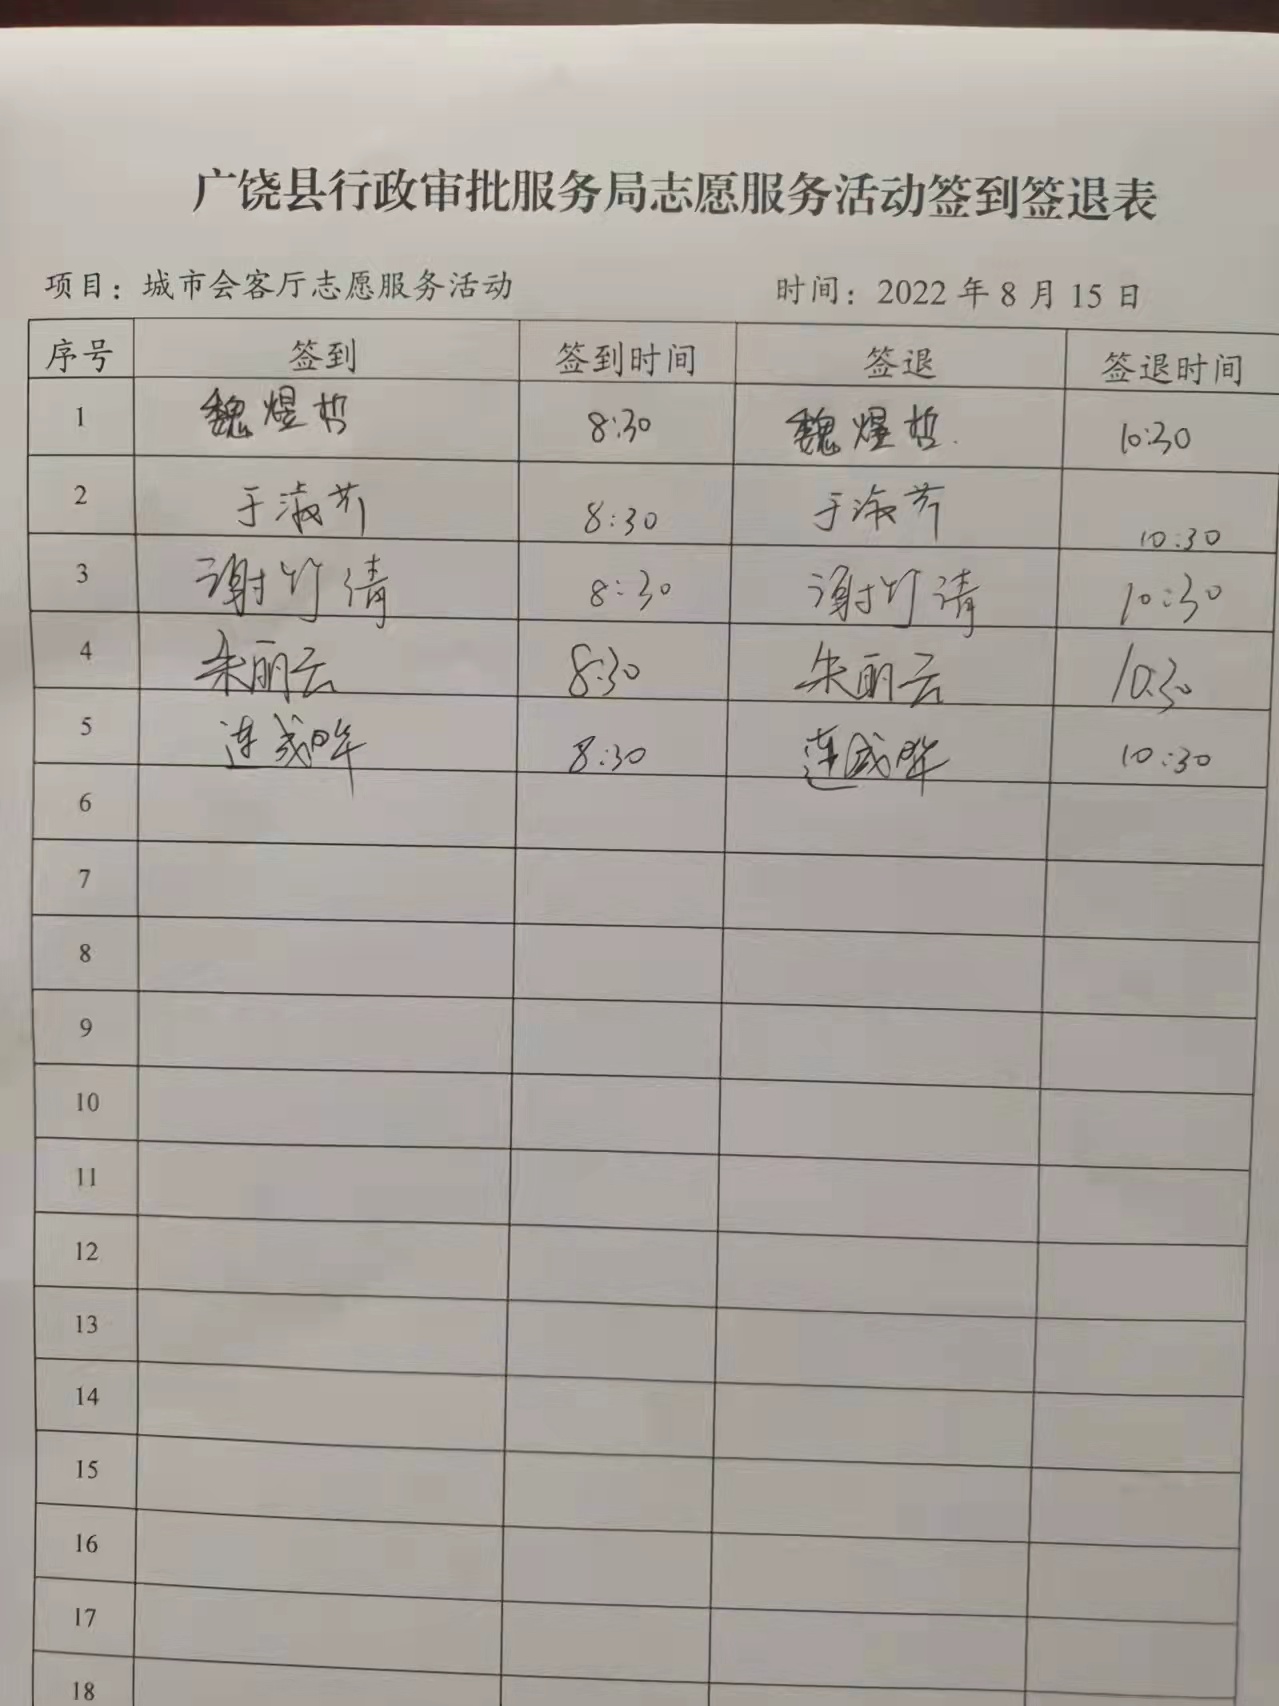 广饶县行政审批服务局志愿服务活动签到签退表
项目：城市会客厅志愿服务活动 时间：2022 年 8 月 15 日
序号 签到 签到时间 签退 签退时间
1 魏煜哲 8:30 魏煜哲 10:30
2 于淑芹 8:30 于淑芹 10:30
3 谢竹倩 8:30 谢竹清 10:30
4 朱丽云 8:30 朱丽云 10:30
5 连成 8:30 连成 10:30
6
7
8
9
10
11
12
13
14
15
16
17
18